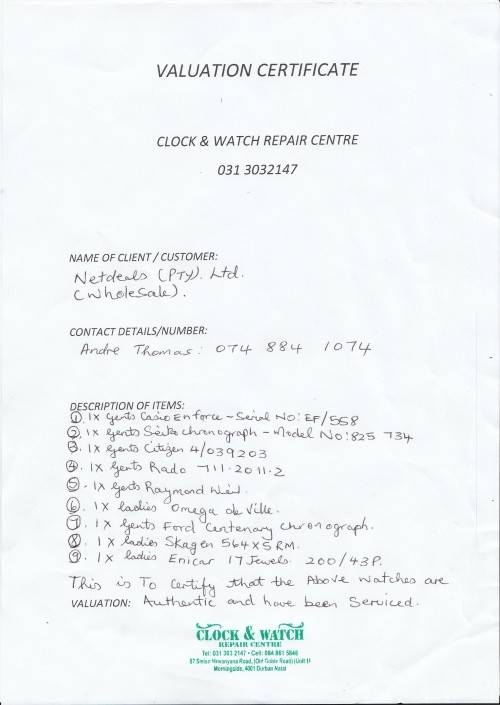 VALUATION CERTIFICATE
CLOCK & WATCH REPAIR CENTRE
031 3032147
NAME OF CLIENT / CUSTOMER:
Netdeals (PTY). Ltd.
(Wholesale).
CONTACT DETAILS/NUMBER:
Andre Thomas: 074 884 1074
DESCRIPTION OF ITEMS:
① 1X Gents Casio Enforce - Serial NO: EF/558
② 1X gents Seiko chronograph - Model No: 825 734
③ 1X Gents Citizen 4/039203
④ 1X Gents Rado 711.2011.2
⑤ 1X Gents Raymond Weil.
⑥ 1X ladies Omega de Ville.
⑦ 1X Gents Ford Centenary Chronograph.
⑧ 1X ladies Skagen 564X5RM.
⑨ 1X ladies Enicar 17 Jewels 200/43P.
This is To Certify that the Above watches are
VALUATION: Authentic and have been Serviced.
CLOCK & WATCH
REPAIR CENTRE
Tel: 031 303 2147 • Cell: 084 881 5846
Road, (Old Goble Road) (Unit
Morningside, 4001 Durban Natal